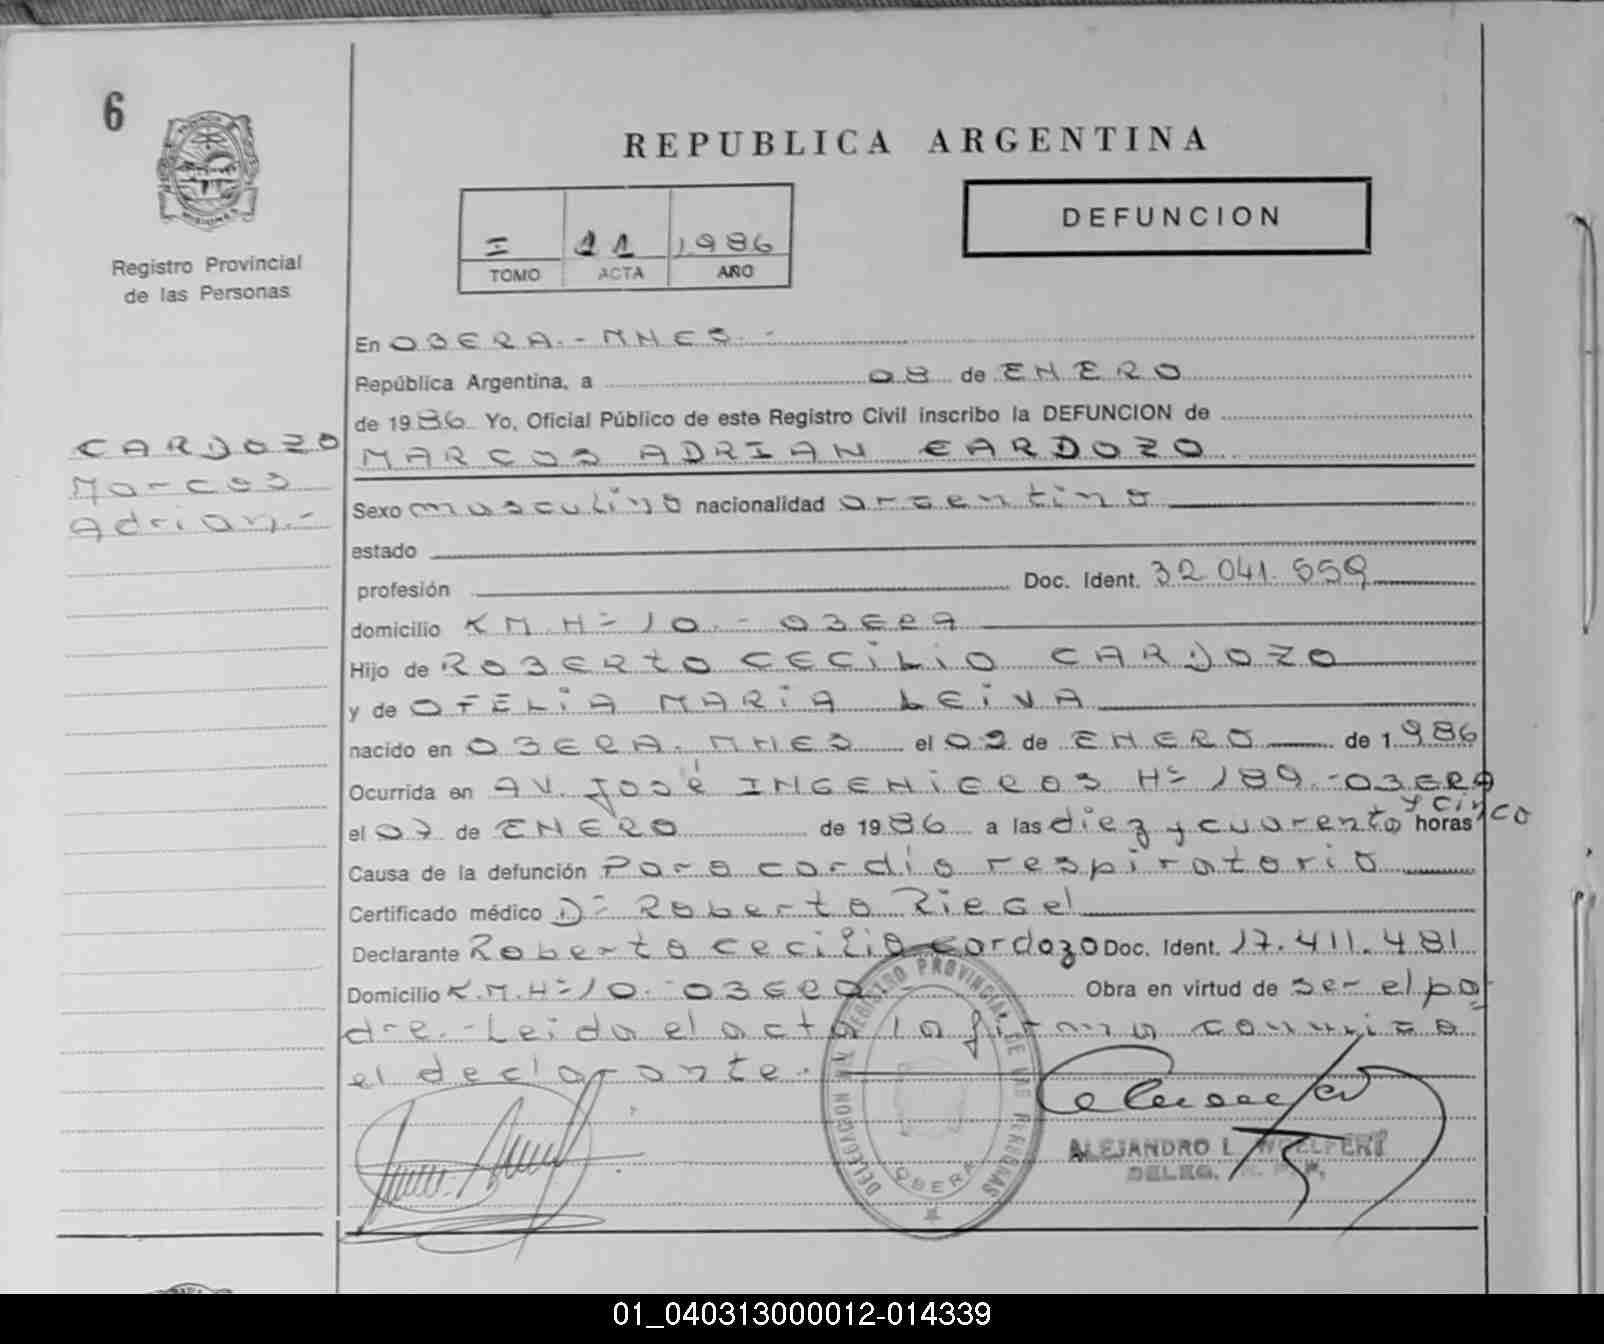 6
REPUBLICA ARGENTINA
DEFUNCION
I 11 1986
TOMO ACTA AÑO
Registro Provincial
de las Personas
CARDOZO
Marcos
Adrian.-
En OBERA.- MNES. -
República Argentina, a 08 de ENERO
de 1986 Yo, Oficial Público de este Registro Civil inscribo la DEFUNCION de
MARCOS ADRIAN CARDOZO
Sexo masculino nacionalidad argentino
estado
profesión Doc. Ident. 32.041.559
domicilio KM.Nº 10.- OBERA
Hijo de ROBERTO CECILIO CARDOZO
y de OFELIA MARIA LEIVA
nacido en OBERA. MNES el 02 de ENERO de 1986
Ocurrida en AV. José INGENIEROS Nº 189.-OBERA
el 07 de ENERO de 1986 a las diez y cuarenta y cinco horas
Causa de la defunción Paro cardio respiratorio
Certificado médico Dr Roberto Riegel
Declarante Roberto cecilio cardozo Doc. Ident. 17.411.481
Domicilio K.M.Nº10.-OBERA. Obra en virtud de ser el pa
dre.-Leida el acta la firma conmigo
el declarante.
REGISTRO PROVINCIAL DE LAS PERSONAS
DELEGACION
OBERA
ALEJANDRO L.
DELEG.
01_040313000012-014339